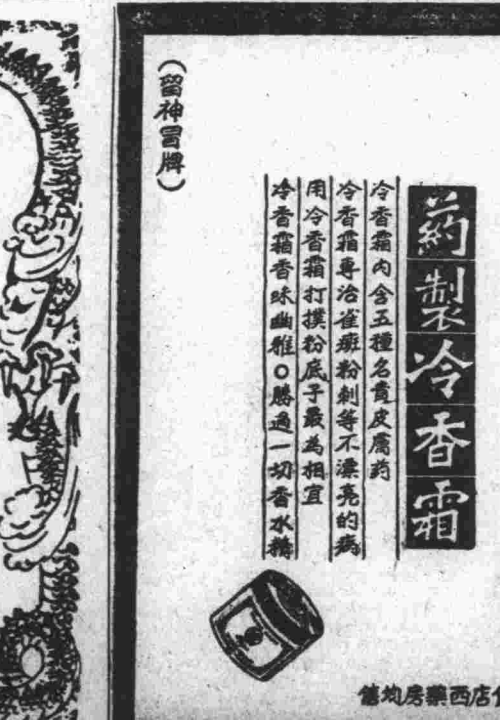 葯製冷香霜
冷香霜內含五種名貴皮膚葯
冷香霜專治雀斑粉刺等不漂亮的病
用冷香霜打撲粉底子最為相宜
冷香霜香味幽雅○勝過一切香水精
（留神冒牌）
店西藥房均售